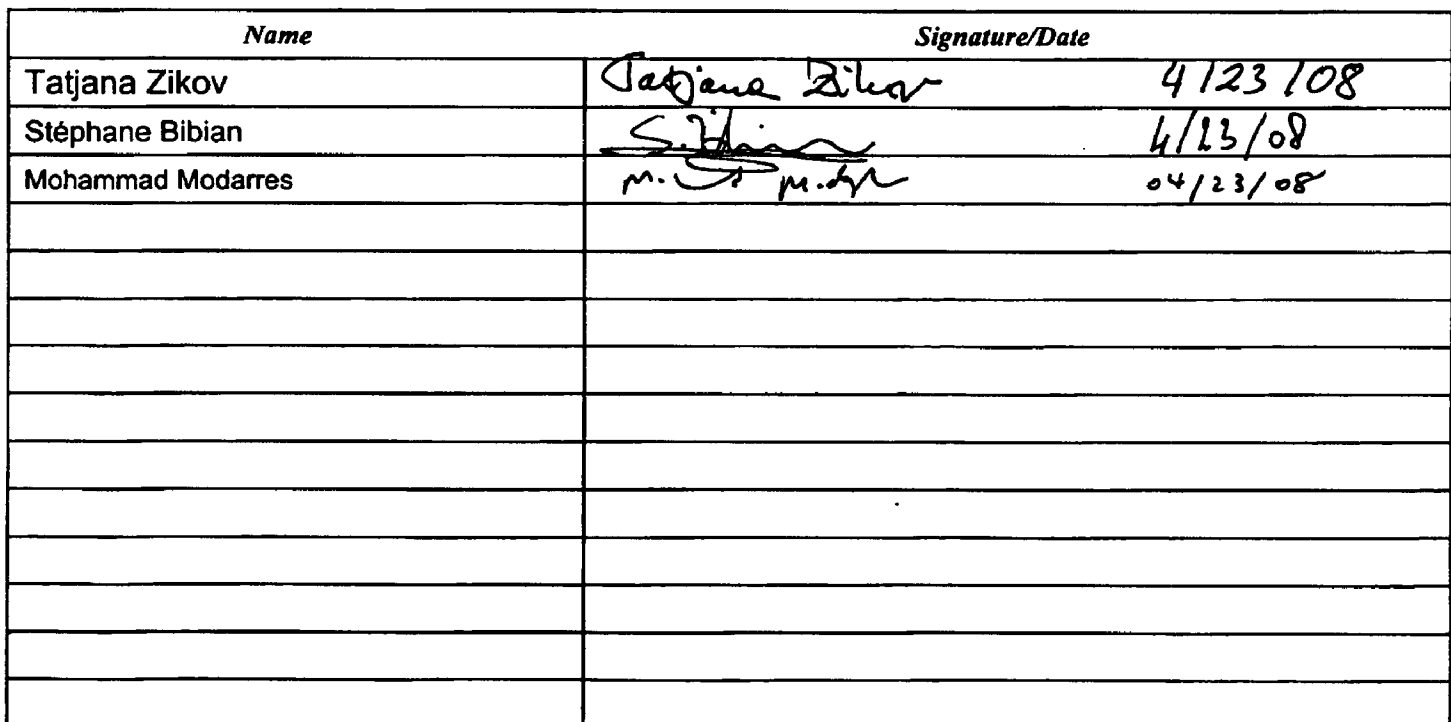 Name Signature/Date
Tatjana Zikov Tatjana Zikov 4/23/08
Stéphane Bibian S. 4/23/08
Mohammad Modarres M. 04/23/08